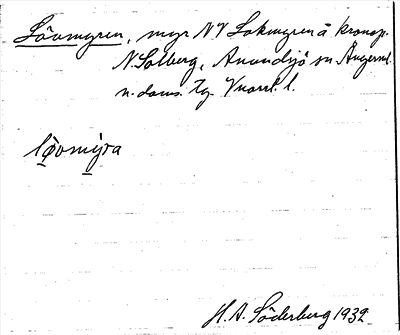 Lövmyren, myr NV Lakmyren å kronop.
N. Solberg, Anundsjö sn Ångerml.
n. doms. tg. Vnorrl. l.
løvmyra
H. A. Söderberg 1932